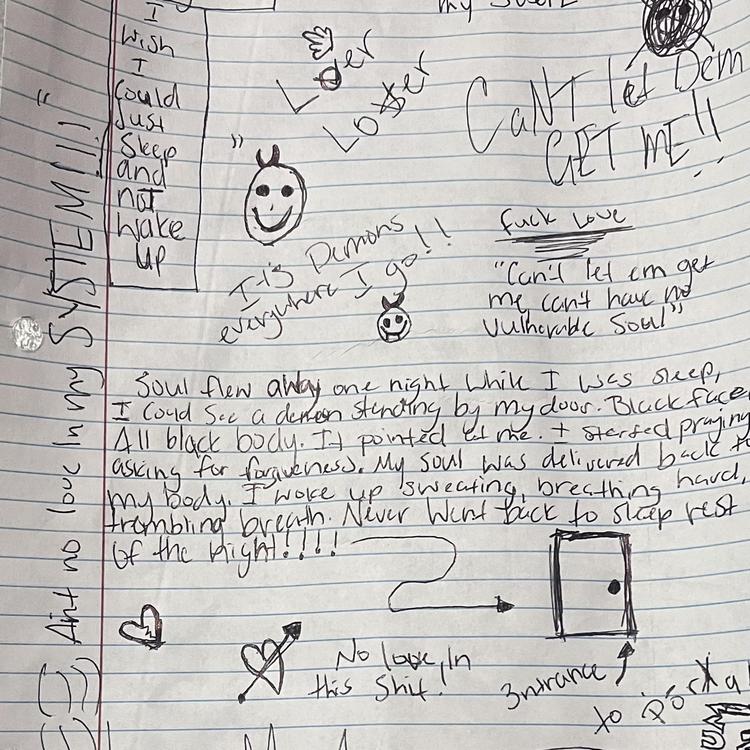 I
Wish
I
Could
Just
Sleep
and
not
Wake
up
Lover
Loser
CaN'T let Dem
GET ME!!
It's Demons
everywhere I go!!
fuck love
"Can't let em get
me, can't have no
vulnerable Soul"
Soul flew away one night while I was sleep,
I could see a demon standing by my door. Black face,
All black body. It pointed at me. I started praying
asking for forgiveness. My soul was delivered back to
my body. I woke up sweating, breathing hard,
trembling breath. Never went back to sleep rest
of the night!!!!
No love, In
this shit!
3ntrance
to
"Ain't no love In my SYSTEM!!!"